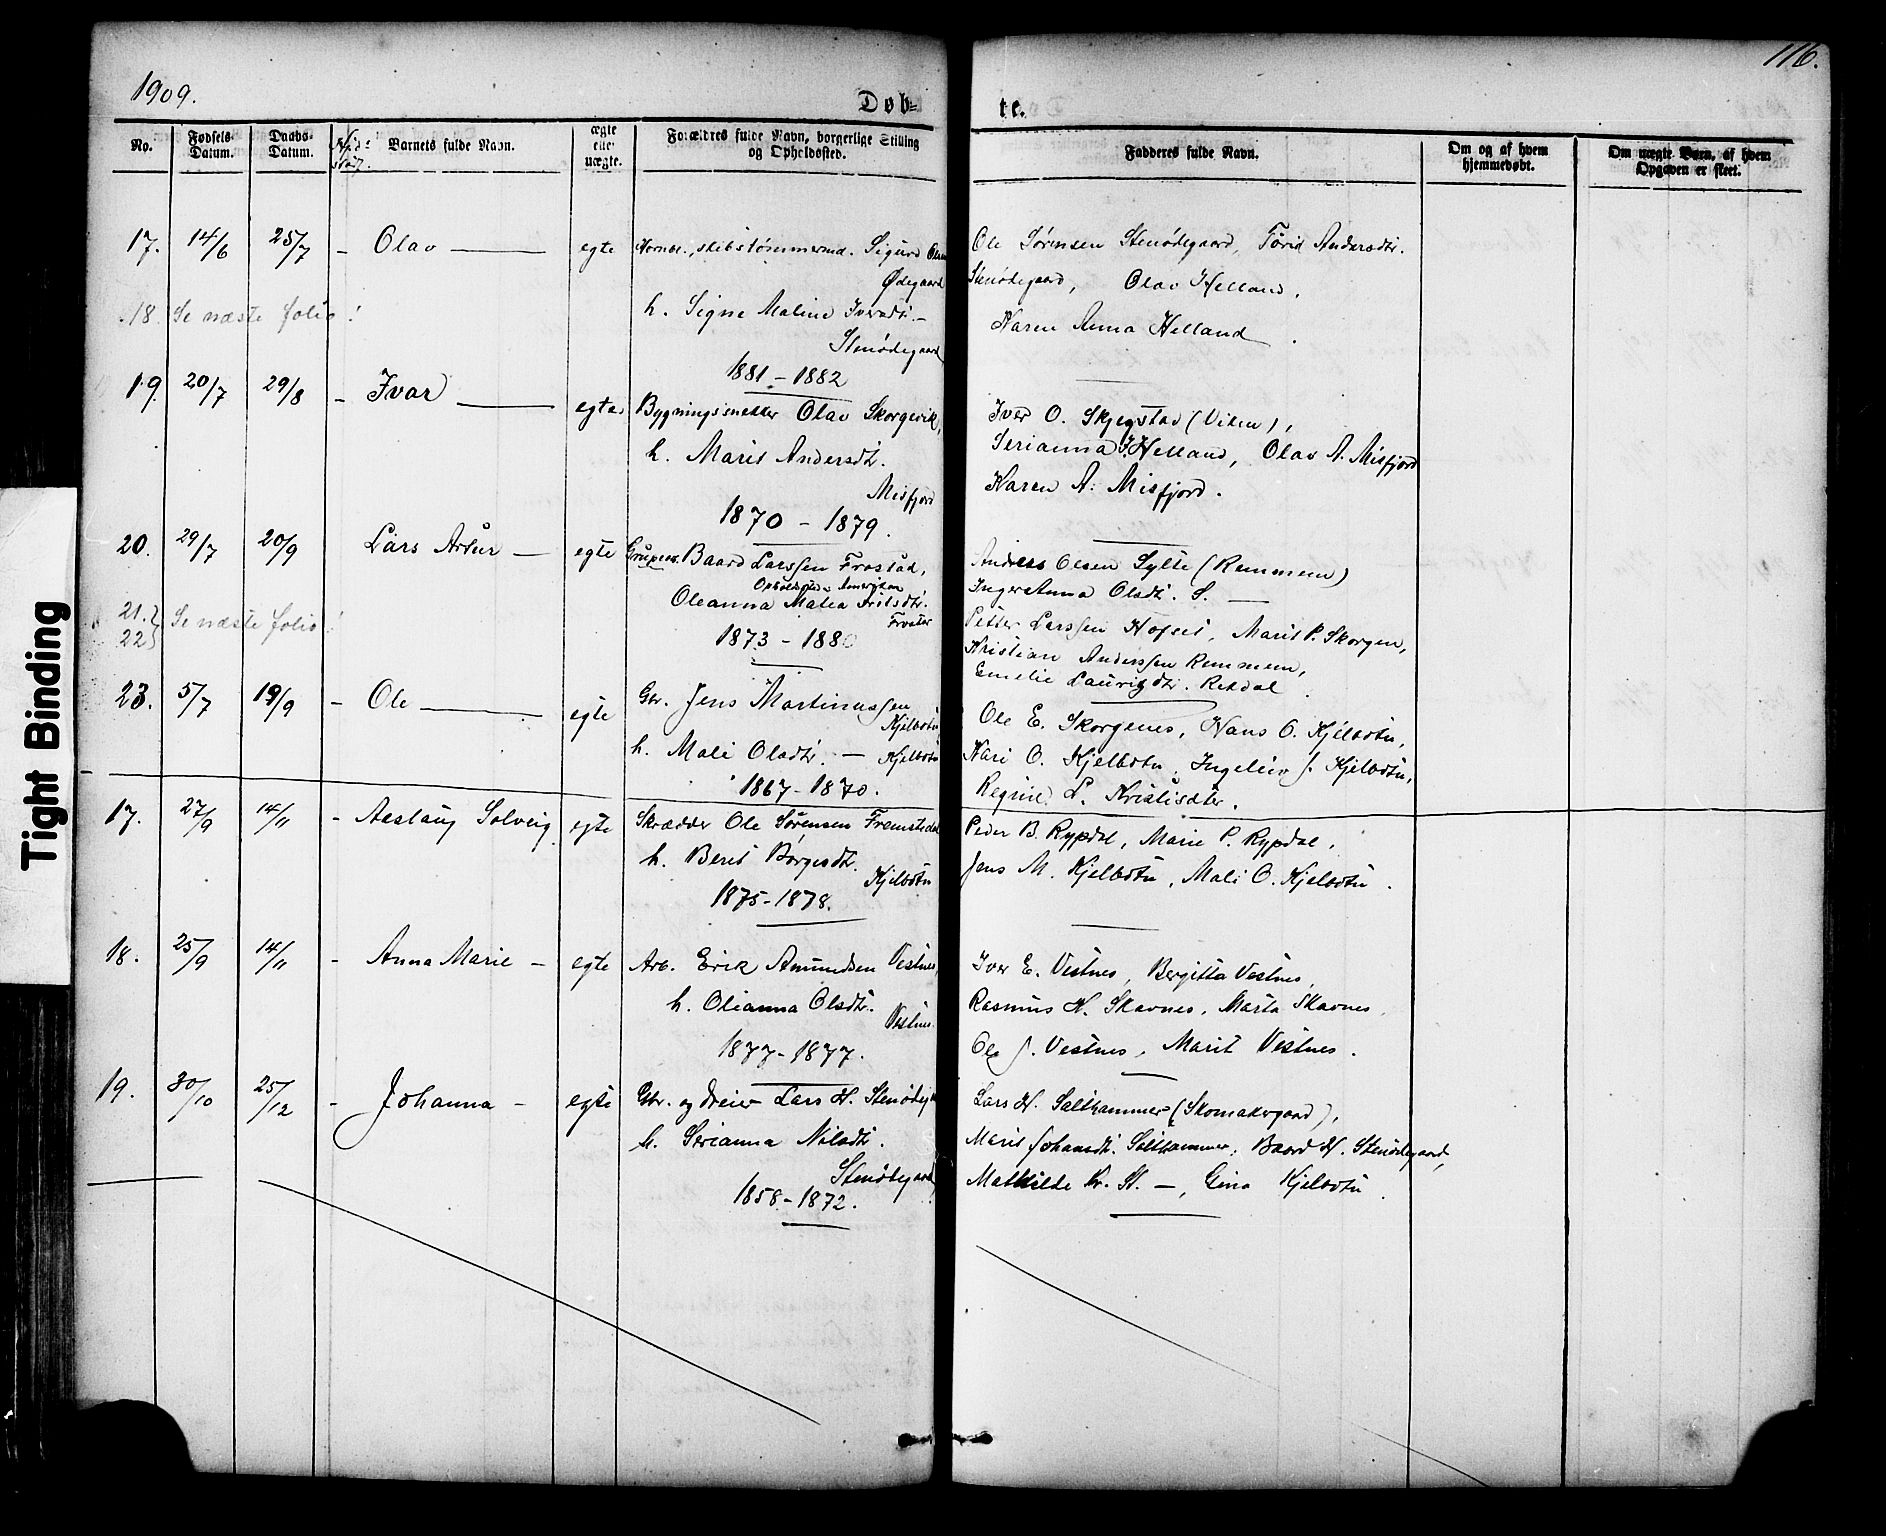 1909.
116.
Døb=
te.
No.
Fødsels Datum.
Daabs-Datum.
Barnets fulde Navn.
ægte eller uægte.
Forældres fulde Navn, borgerlige Stilling og Opholdssted.
Fadderes fulde Navn.
Om og af hvem hjemmedøbt.
Om uægte Børn, af hvem Opgaven er skeet.
17. 14/6 25/7 - Olav — egte
skibstømmermd. Sigurd Olsen
Ødegaard
h. Signe Maline Iversdt. -
Stenødegaard
1881 - 1882
Ole Sørensen Stenødegaard, Tørid Andersdtr.
Stenødegaard, Olav Helland,
Karen Anna Helland.
18. Se næste folio!
19. 20/7 29/8 - Ivar — egte
Bygningssnekker Olav Skorgevik,
h. Marit Andersdt.
Misfjord
1870 - 1879.
Iver O. Skjegstad (Viken),
Serianna I. Helland, Olav A. Misfjord
Karen A. Misfjord.
20. 29/7 20/9 Lars Artur — egte
Baard Larssen Frostad,
Oleanna Malia
1873 - 1880
Andreas Olsen Sylte (Remmem)
Inger Anna Olsdt. S. —
Petter Larssen Hofset, Marit P. Skorgen,
Kristian Anderssen Remmem,
Emelie Lauritzdt. Rekdal.
21.}
22} Se næste folio!
23. 5/7 19/9 - Ole — egte
Gbr. Jens Martinussen
Kjelbotn
h. Mali Olsdt. — Kjelbotn
1867 - 1870.
Ole E. Skorgenes, Hans O. Kjelbotn,
Kari O. Kjelbotn, Ingeleiv J. Kjelbotn,
Regine L. Kristisdtr.
17. 27/9 14/11 - Aaslaug Solveig egte
Skrædder Ole Sørensen Fremstedal
h. Berit Børgesdt.
Kjelbotn
1875 - 1878.
Peder B. Rypdal, Marie P. Rypdal,
Jens M. Kjelbotn, Mali O. Kjelbotn.
18. 25/9 14/11 - Anna Marie - egte
Arb. Erik Amundsen Vestnes,
h. Olianna Olsdt.
Vestnes
1877 - 1877.
Iver E. Vestnes, Bergitta Vestnes,
Rasmus H. Skavnes, Marta Skavnes,
Ole J. Vestnes, Marit Vestnes.
19. 30/10 25/12 - Johanna - egte
Gbr. og dreier Lars H. Stenødeg
h. Serianna Nilsdt.
Stenødegaard
1858 - 1872.
Lars H. Salthammer (Skomakergaard),
Marit Johansdt. Salthammer, Baard H. Stenødegaard,
Mathilde Kr. St. —, Gina Kjelbotn.
Tight Binding